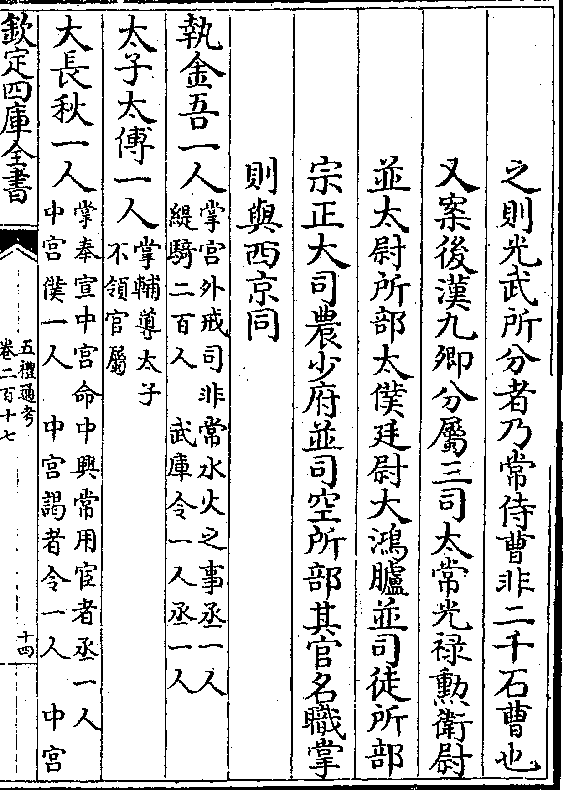 之則光武所分者乃常侍曹非二千石曹也
又案後漢九卿分屬三司太常光禄勲衛尉
並太尉所部太僕廷尉大鴻臚並司徒所部
宗正大司農少府並司空所部其官名職掌
則與西京同
執金吾一人掌宫外戒司非常水火之事丞一人
緹騎二百人 武庫令一人丞一人
太子太傅一人掌輔導太子
不領官屬
大長秋一人掌奉宣中宫命中興常用宦者丞一人
中宫僕一人 中宫謁者令一人 中宫
欽定四庫全書
五禮通考
卷二百十七
十四